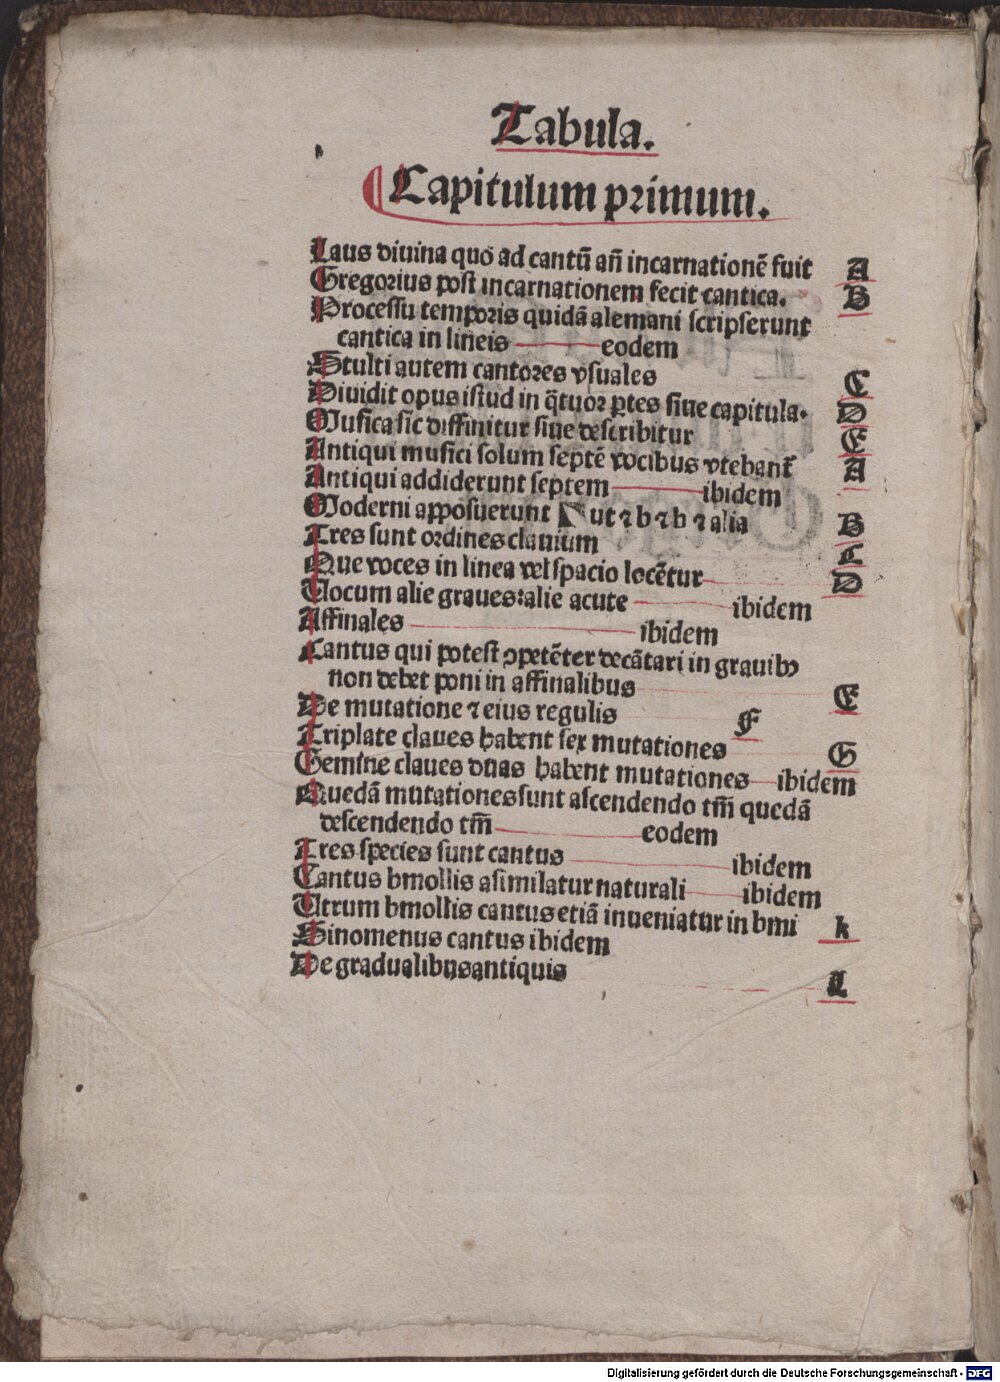 Tabula.
Capitulum primum.
Laus diuina quo ad cantū añ incarnationē fuit A
Gregorius post incarnationem fecit cantica. B
Processu temporis quidā alemani scripserunt
cantica in lineis eodem
Stulti autem cantores vsuales C
Diuidit opus istud in q̄tuor ꝑtes siue capitula. D
Musica sic diffinitur siue describitur E
Antiqui musici solum septē vocibus vtebant᷑ A
Antiqui addiderunt septem ibidem
Moderni apposuerunt Γ ut ⁊ b ⁊ b ⁊ alia B
Tres sunt ordines clauium C
Que voces in linea vel spacio locētur D
Uocum alie graues: alie acute ibidem
Affinales ibidem
Cantus qui potest ꝯpetēter decātari in grauibꝰ
non debet poni in affinalibus E
De mutatione ⁊ eius regulis F
Triplate claues habent sex mutationes G
Gemine claues duas habent mutationes ibidem
Quedā mutationes sunt ascendendo tm̄ quedā
descendendo tm̄ eodem
Tres species sunt cantus ibidem
Cantus bmollis asimilatur naturali ibidem
Utrum bmollis cantus etiā inueniatur in bmi k
Sinomenus cantus ibidem
De gradualibus antiquis L
Digitalisierung gefördert durch die Deutsche Forschungsgemeinschaft - DFG